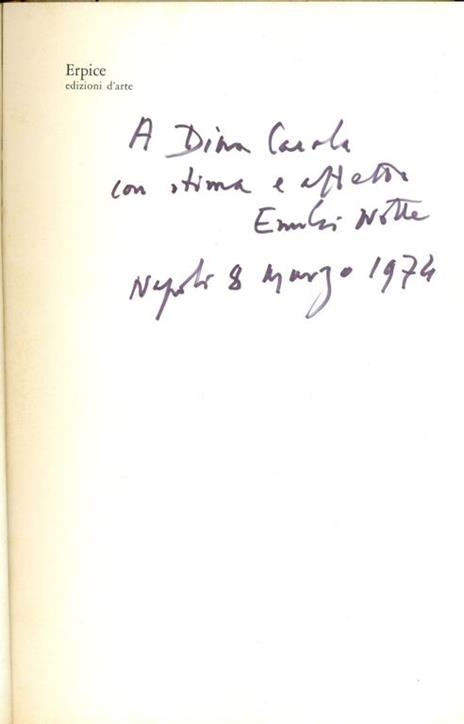 Erpice
edizioni d'arte
A Dina Carola
con stima e affetto
Emilio Notte
Napoli 8 Marzo 1974